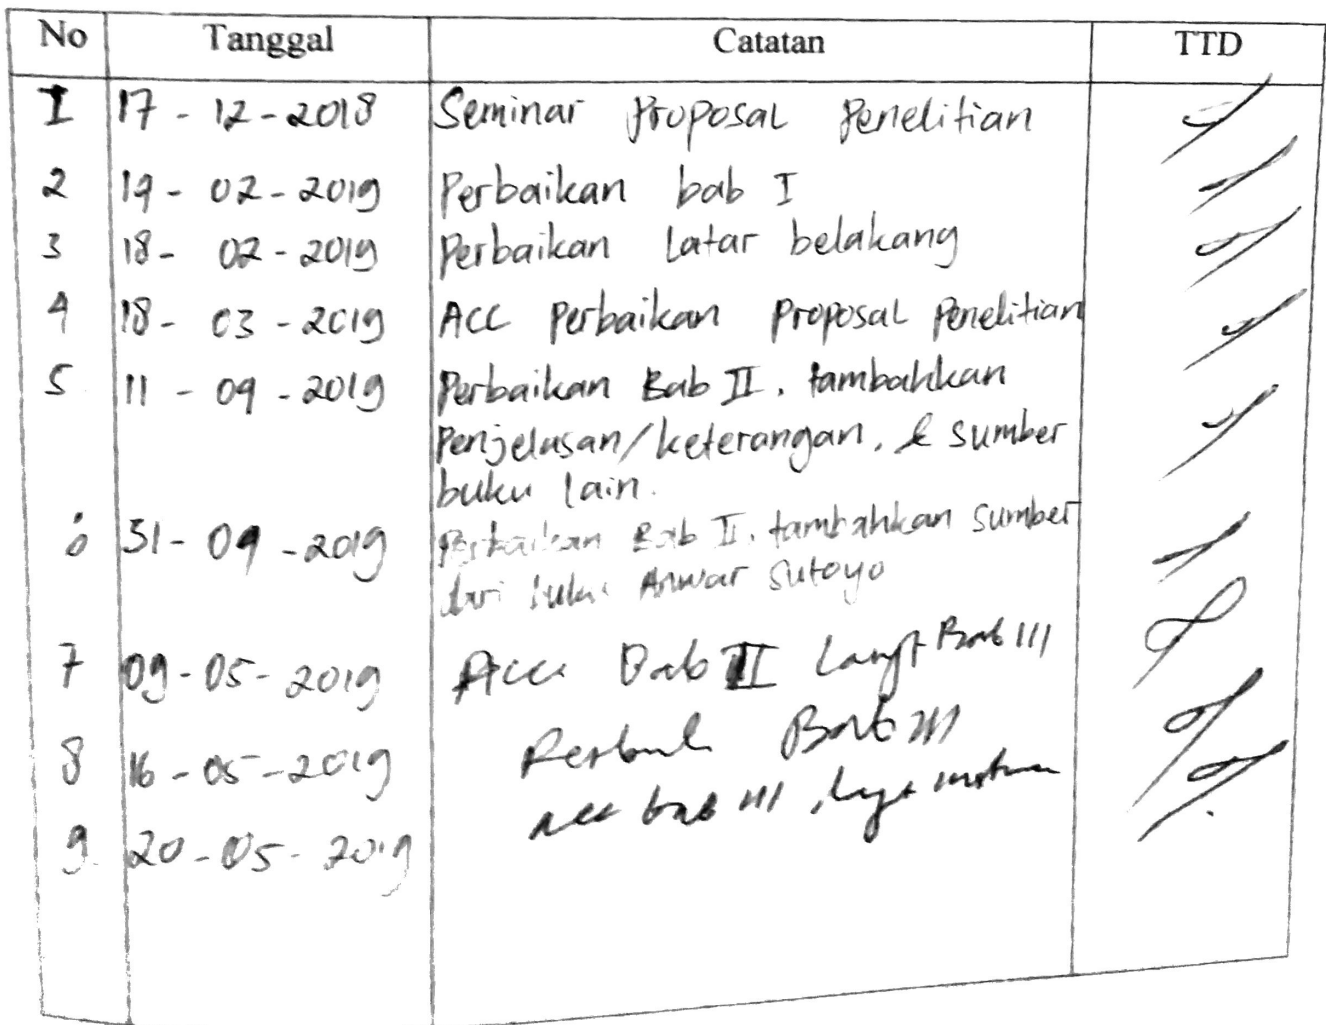 No Tanggal Catatan TTD
1 17 - 12 - 2018 Seminar Proposal Penelitian
2 19 - 02 - 2019 Perbaikan bab I
3 18 - 02 - 2019 Perbaikan Latar belakang
4 18 - 03 - 2019 ACC Perbaikan Proposal Penelitian
5 11 - 04 - 2019 Perbaikan Bab II. tambahkan
Penjelasan/keterangan, & sumber
buku lain.
31 - 04 - 2019 Perbaikan Bab II. tambahkan sumber
dari buku Anwar Sutoyo
7 09 - 05 - 2019 Acc Bab II Lanjt Bab III
8 16 - 05 - 2019 Bab III
9 20 - 05 - 2019 acc bab III,